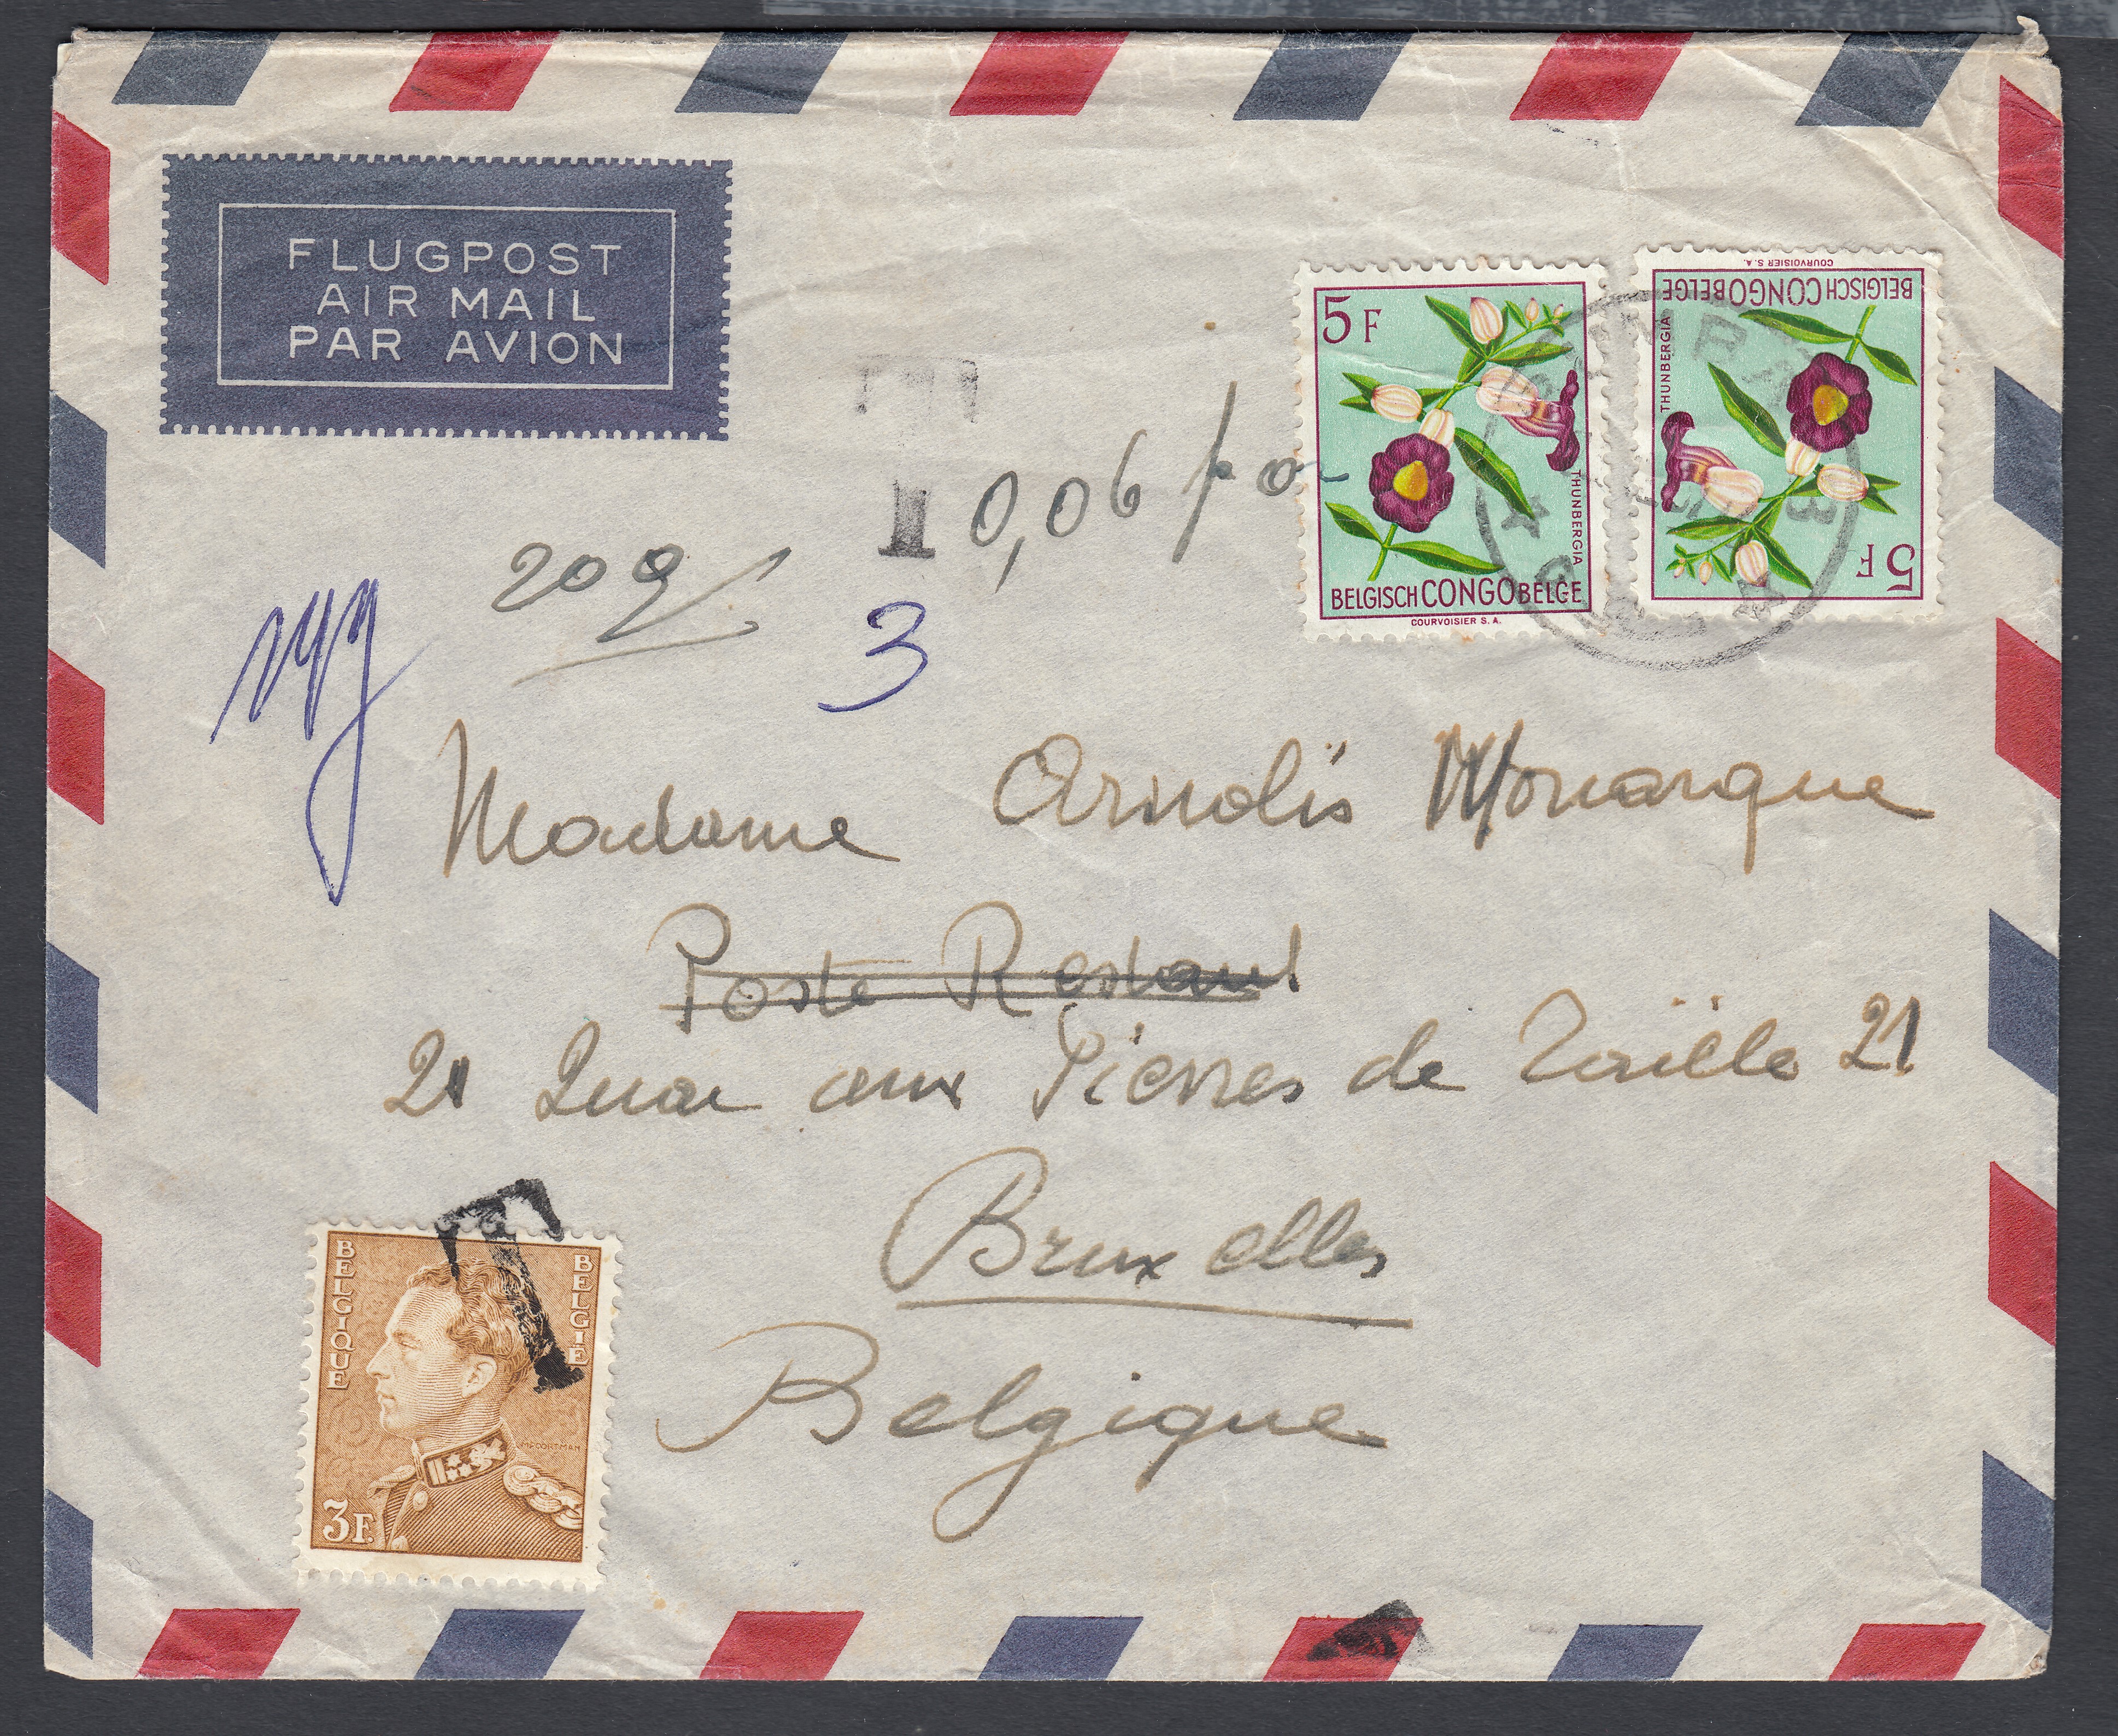 FLUGPOST
AIR MAIL
PAR AVION
5F
THUNBERGIA
BELGISCH CONGO BELGE
COURVOISIER S.A.
COURVOISIER S.A.
BELGISCH CONGO BELGE
THUNBERGIA
5F
T 0,06 f or
20g
3
Madame Arnolis Monarque
Poste Restant
21 Quai aux Pierres de Taille 21
Bruxelles
Belgique
BELGIQUE
BELGIË
3F.
T